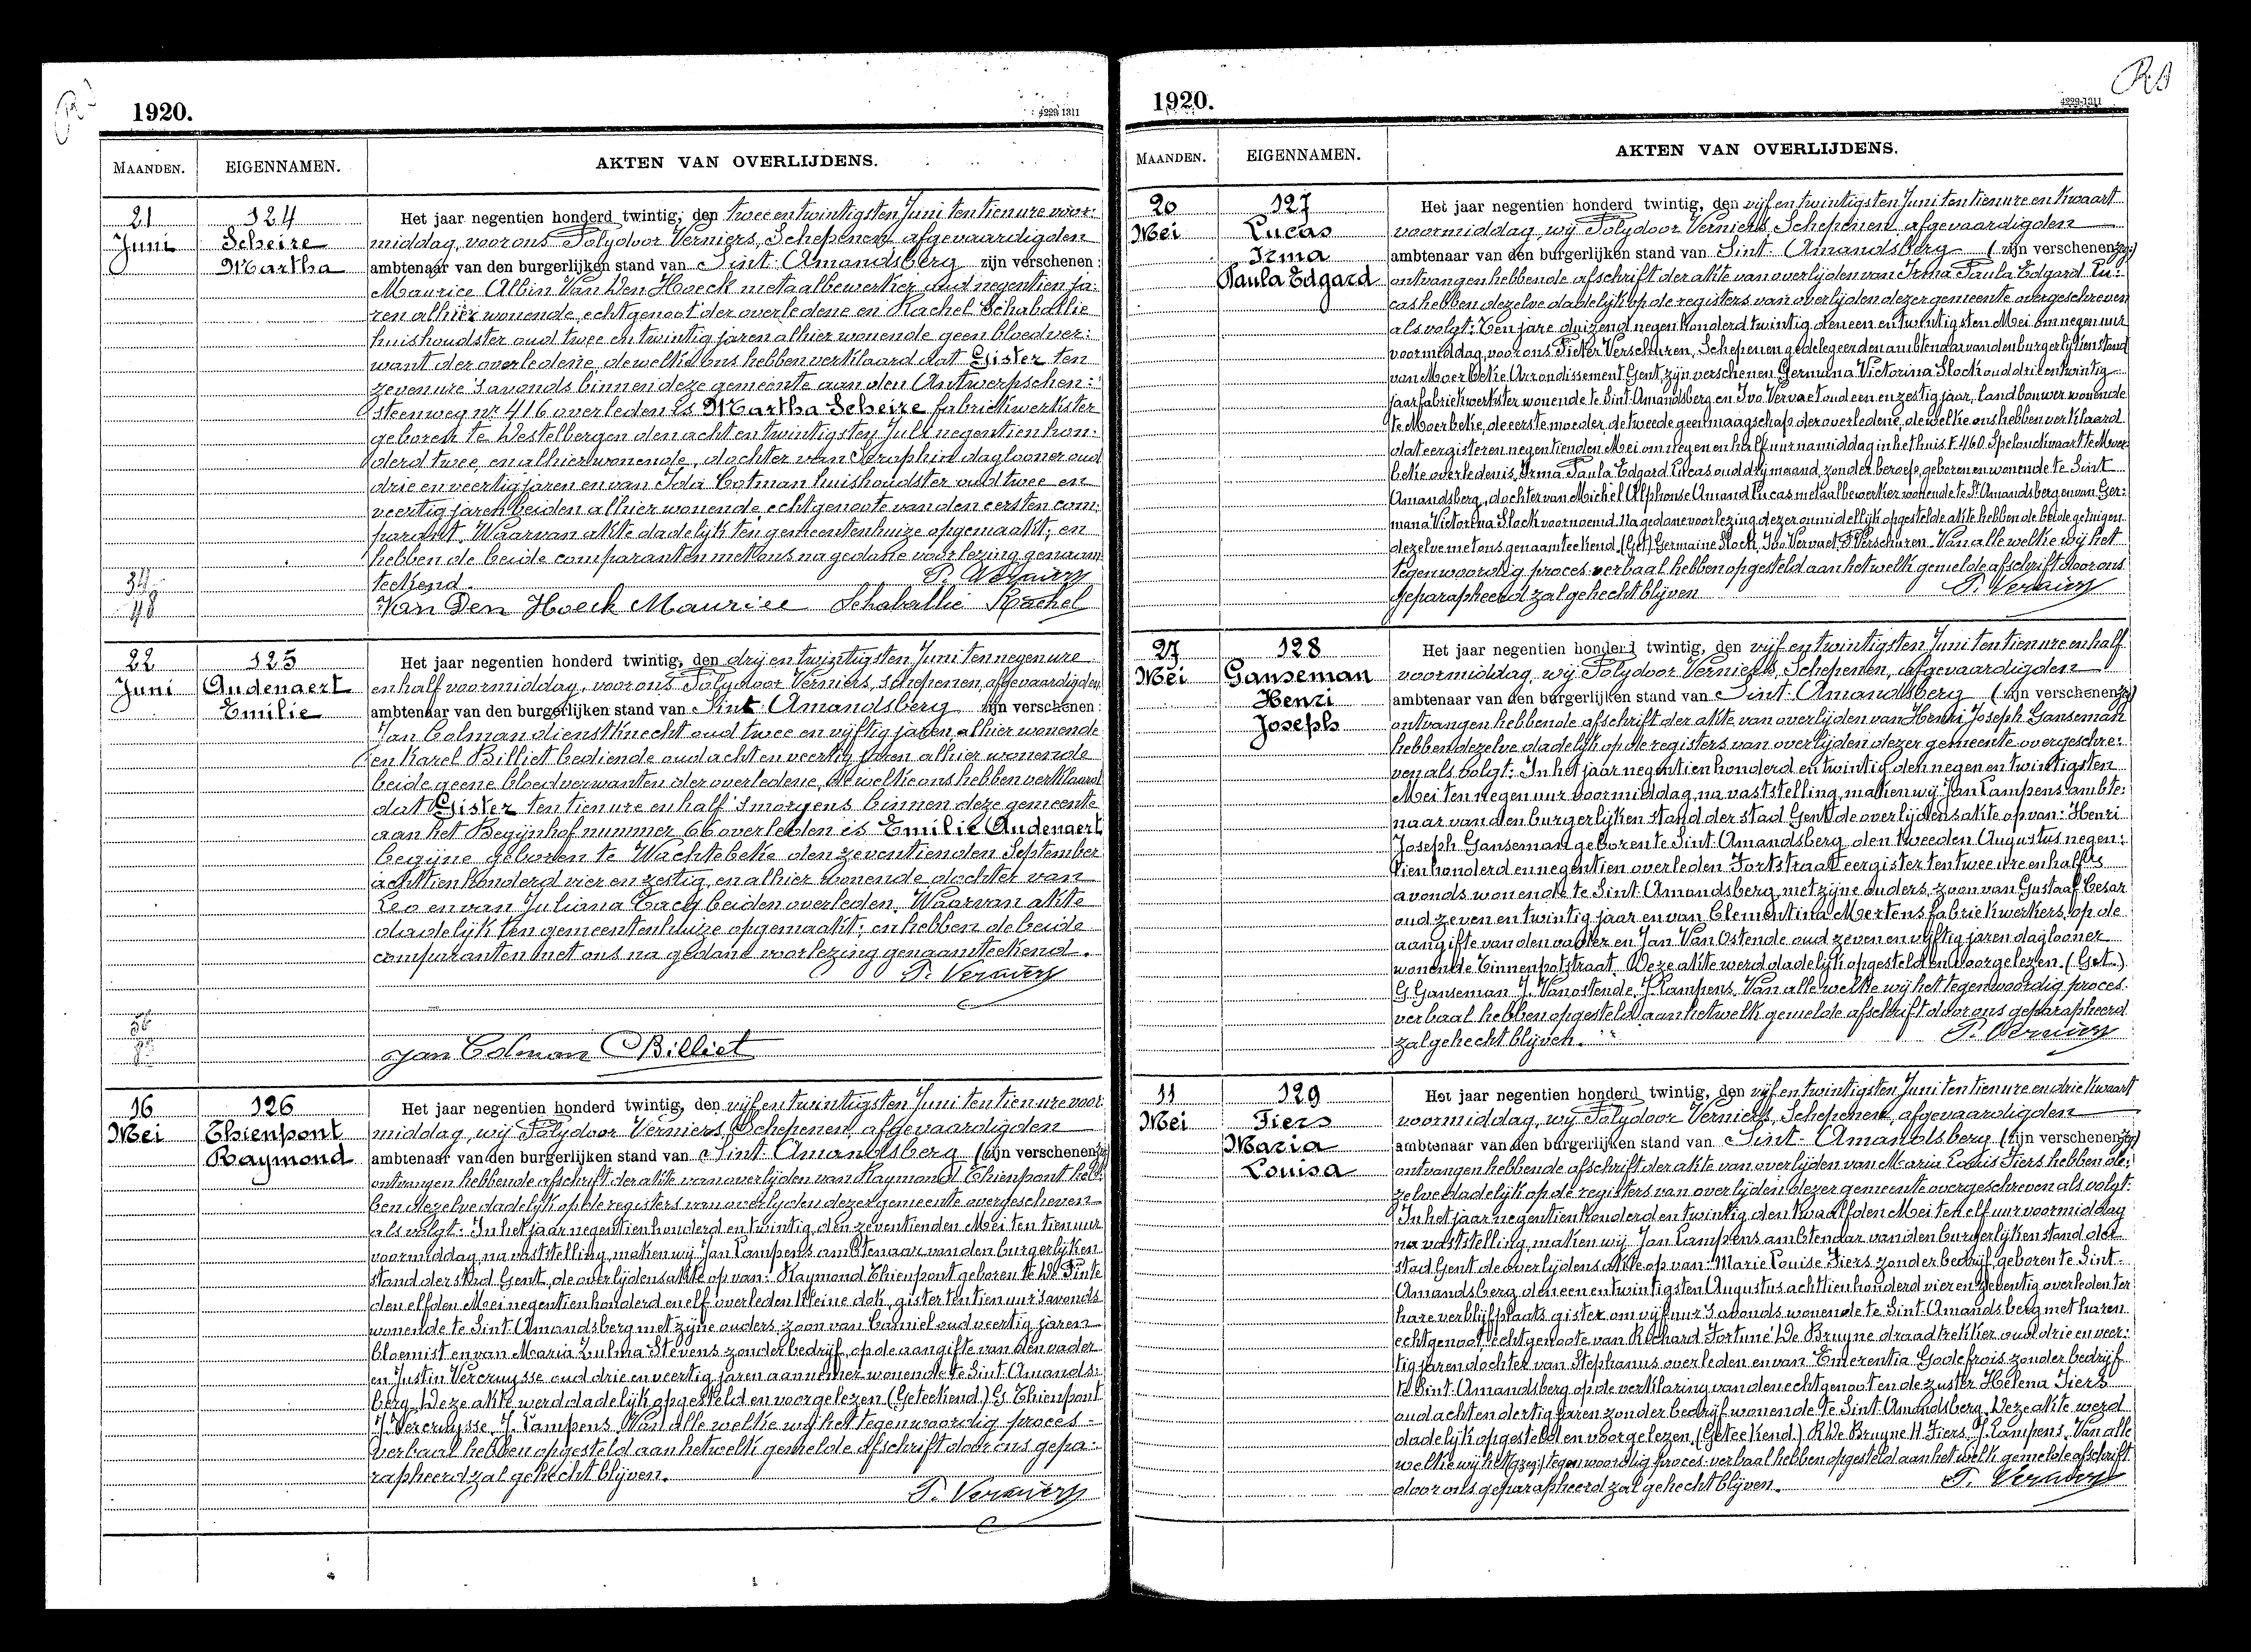 1920.
4229-1311
MAANDEN.
EIGENNAMEN.
AKTEN VAN OVERLIJDENS.
21
Juni
124
Scheire
Martha
Het jaar negentien honderd twintig, den twee en twintigsten Juni ten tien ure voor-
middag, voor ons Polydoor Verniers, Schepenen afgevaardigden
ambtenaar van den burgerlijken stand van Sint-Amandsberg zijn verschenen:
Maurice Albin Van Den Hoeck metaalbewerker oud negentien ja-
ren alhier wonende, echtgenoot der overledene en Rachel Schabaillie
huishoudster oud twee en twintig jaren alhier wonende geen bloedver-
want der overledene, dewelke ons hebben verklaard dat Gister ten
zeven ure 's avonds binnen deze gemeente aan den Antwerpschen-
steenweg nr 416 overleden is Martha Scheire fabriekwerkster
geboren te Destelbergen den acht en twintigsten Juli negentien hon-
derd twee, en alhier wonende, dochter van Seraphin daglooner oud
drie en veertig jaren en van Ida Cotman huishoudster oud twee en
veertig jaren beiden alhier wonende, echtgenoote van den eersten com-
parant. Waarvan akte dadelijk ten gemeentenhuize opgemaakt; en
hebben de beide comparanten met ons na gedane voorlezing genaam-
teekend. P. Verniers
Van Den Hoeck Maurice Schaballie Rachel
22
Juni
125
Audenaert
Emilie
Het jaar negentien honderd twintig, den drij en twintigsten Juni ten negen ure
en half voormiddag, voor ons Polydoor Verniers, Schepenen, afgevaardigden
ambtenaar van den burgerlijken stand van Sint-Amandsberg zijn verschenen:
Jan Colman dienstknecht oud twee en vijftig jaren, alhier wonende
en Karel Billiet bediende oud acht en veertig jaren alhier wonende
beide geene bloedverwanten der overledene, dewelke ons hebben verklaard
dat Gister ten tien ure en half 's morgens binnen deze gemeente
aan het Begijnhof nummer 66 overleden is Emilie Audenaert
begijne geboren te Wachtebeke den zeventienden September
achttien honderd vier en zestig, en alhier wonende dochter van
Leo en van Juliana Cacy beiden overleden. Waarvan akte
dadelijk ten gemeentenhuize opgemaakt; en hebben de beide
comparanten met ons na gedane voorlezing genaamteekend.
P. Verniers
Jan Colman Billiet
16
Mei
126
Thienpont
Raymond
Het jaar negentien honderd twintig, den vijf en twintigsten Juni ten tien ure voor
middag, wij Polydoor Verniers, Schepenen afgevaardigden
ambtenaar van den burgerlijken stand van Sint-Amandsberg (zijn verschenen
ontvangen hebbende afschrift der akte van overlijden van Raymond Thienpont heb-
ben dezelve dadelijk op de registers van overlijden dezer gemeente overgescheven
als volgt: In het jaar negentien honderd en twintig den zeventienden Mei ten tien uur
voormiddag na vaststelling, maken wij Jan Lampens ambtenaar van den burgerlijken
stand der stad Gent, de overlijdensakte op van: Raymond Thienpont geboren te De Pinte
den elfden Mei negentien honderd en elf overleden Kleine dok, gister ten tien uur 's avonds
wonende te Sint Amandsberg met zijne ouders, zoon van Camiel oud veertig jaren
bloemist en van Maria Zulma Stevens zonder bedrijf, op de aangifte van den vader
en Justin Vercruysse oud drie en veertig jaren aannemer wonende te Sint Amands-
berg. Deze akte werd dadelijk opgesteld en voorgelezen (Geteekend) G. Thienpont
J. Vercruysse J. Lampens. Van alle welke wij het tegenwoordig proces-
verbaal hebben opgesteld aan hetwelk gemelde afschrift door ons gepa-
rapheerd zal gehecht blijven.
P. Verniers
1920.
4229-1311
MAANDEN.
EIGENNAMEN.
AKTEN VAN OVERLIJDENS.
20
Mei
127
Lucas
Irma
Paula Edgard
Het jaar negentien honderd twintig, den vijf en twintigsten Juni ten tien ure en kwaart
voormiddag, wij Polydoor Verniers, Schepenen, afgevaardigden
ambtenaar van den burgerlijken stand van Sint-Amandsberg (zijn verschenen
ontvangen hebbende afschrift der akte van overlijden van Irma Paula Edgard Lu-
cas hebben dezelve dadelijk op de registers van overlijden dezer gemeente overgeschreven
als volgt: Ten jare duizend negen honderd twintig den een en twintigsten Mei om negen uur
voormiddag, voor ons Pieter Verschuren, Schepenen gedelegeerden ambtenaar van den burgerlijken stand
van Moerbeke Arrondissement Gent, zijn verschenen Germana Victorina Slock oud drij en twintig
jaar fabriekwerkster wonende te Sint Amandsberg en Ivo Vervaet oud een en zestig jaar, landbouwer wonende
te Moerbeke, de eerste moeder, de tweede geen maagschap der overledene, dewelke ons hebben verklaard
dat eergisteren negentienden Mei om negen en half uur namiddag in het huis L 460 Spelonckvaart te Moer-
beke overleden is, Irma Paula Edgard Lucas oud drij maand, zonder beroep, geboren en wonende te Sint
Amandsberg, dochter van Michel Alphonse Amand Lucas metaalbewerker wonende te St Amandsberg en van Ger-
mana Victorina Slock voornoemd. Na gedane voorlezing dezer onmidellijk opgestelde akte hebben de beide getuigen
dezelve met ons genaamteekend. (Get) Germaine Slock, Ivo Vervaet, P. Verschuren. Van alle welke wij het
tegenwoordig proces-verbaal hebben opgesteld aan hetwelk gemelde afschrift door ons
geparapheerd zal gehecht blijven P. Verniers
27
Mei
128
Ganseman
Henri
Joseph
Het jaar negentien honderd twintig, den vijf en twintigsten Juni ten tien ure en half
voormiddag, wij Polydoor Verniers, Schepenen, afgevaardigden
ambtenaar van den burgerlijken stand van Sint-Amandsberg (zijn verschenen
ontvangen hebbende afschrift der akte van overlijden van Henri Joseph Ganseman
hebben dezelve dadelijk op de registers van overlijden dezer gemeente overgeschre-
ven als volgt: In het jaar negentien honderd en twintig den negen en twintigsten
Mei ten negen uur voormiddag, na vaststelling, maken wij Jan Lampens ambte-
naar van den burgerlijken stand der stad Gent de overlijdensakte op van: Henri
Joseph Ganseman geboren te Sint Amandsberg den tweeden Augustus negen-
tien honderd en negentien overleden Fortstraat eergister ten twee ure en half 's
avonds wonende te Sint Amandsberg met zijne ouders, zoon van Gustaaf Cesar
oud zeven en twintig jaar en van Clementina Mertens fabriekwerkers, op de
aangifte van den vader en Jan Van Ostende oud zeven en vijftig jaren daglooner
wonende Tinnenpotstraat. Deze akte werd dadelijk opgesteld en voorgelezen. (Get.)
G. Ganseman J. Vanostende, J. Lampens. Van alle welke wij het tegenwoordig proces-
verbaal hebben opgesteld aan hetwelk gemelde afschrift door ons geparapheerd
zal gehecht blijven. P. Verniers
11
Mei
129
Fiers
Maria
Louisa
Het jaar negentien honderd twintig, den vijf en twintigsten Juni ten tien ure en drie kwaart
voormiddag, wij Polydoor Verniers, Schepenen, afgevaardigden
ambtenaar van den burgerlijken stand van Sint-Amandsberg (zijn verschenen
ontvangen hebbende afschrift der akte van overlijden van Maria Louis Fiers hebben de-
zelve dadelijk op de registers van overlijden dezer gemeente overgeschreven als volgt:
In het jaar negentien honderd en twintig den twaalfden Mei ten elf uur voormiddag
na vaststelling, maken wij Jan Lampens ambtenaar van den burgerlijken stand der
stad Gent de overlijdens akte op van: Marie Louise Fiers zonder bedrijf, geboren te Sint-
Amandsberg den een en twintigsten Augustus achttien honderd vier en zeventig overleden ter
hare verblijfplaats gister om vijf uur 's avonds wonende te Sint Amandsberg met haren
echtgenoot, echtgenoote van Richard Fortuné De Bruyne draadtrekker oud drie en veer-
tig jaren dochter van Stephanus overleden en van Emerentia Godefrois zonder bedrijf
te Sint Amandsberg op de verklaring van den echtgenoot en de zuster Helena Fiers
oud acht en dertig jaren zonder bedrijf wonende te Sint Amandsberg. Deze akte werd
dadelijk opgesteld en voorgelezen. (Geteekend) R. De Bruyne H. Fiers, J. Lampens. Van alle
welke wij het (gzg:) tegenwoordig proces-verbaal hebben opgesteld aan hetwelk gemelde afschrift
door ons geparapheerd zal gehecht blijven. P. Verniers